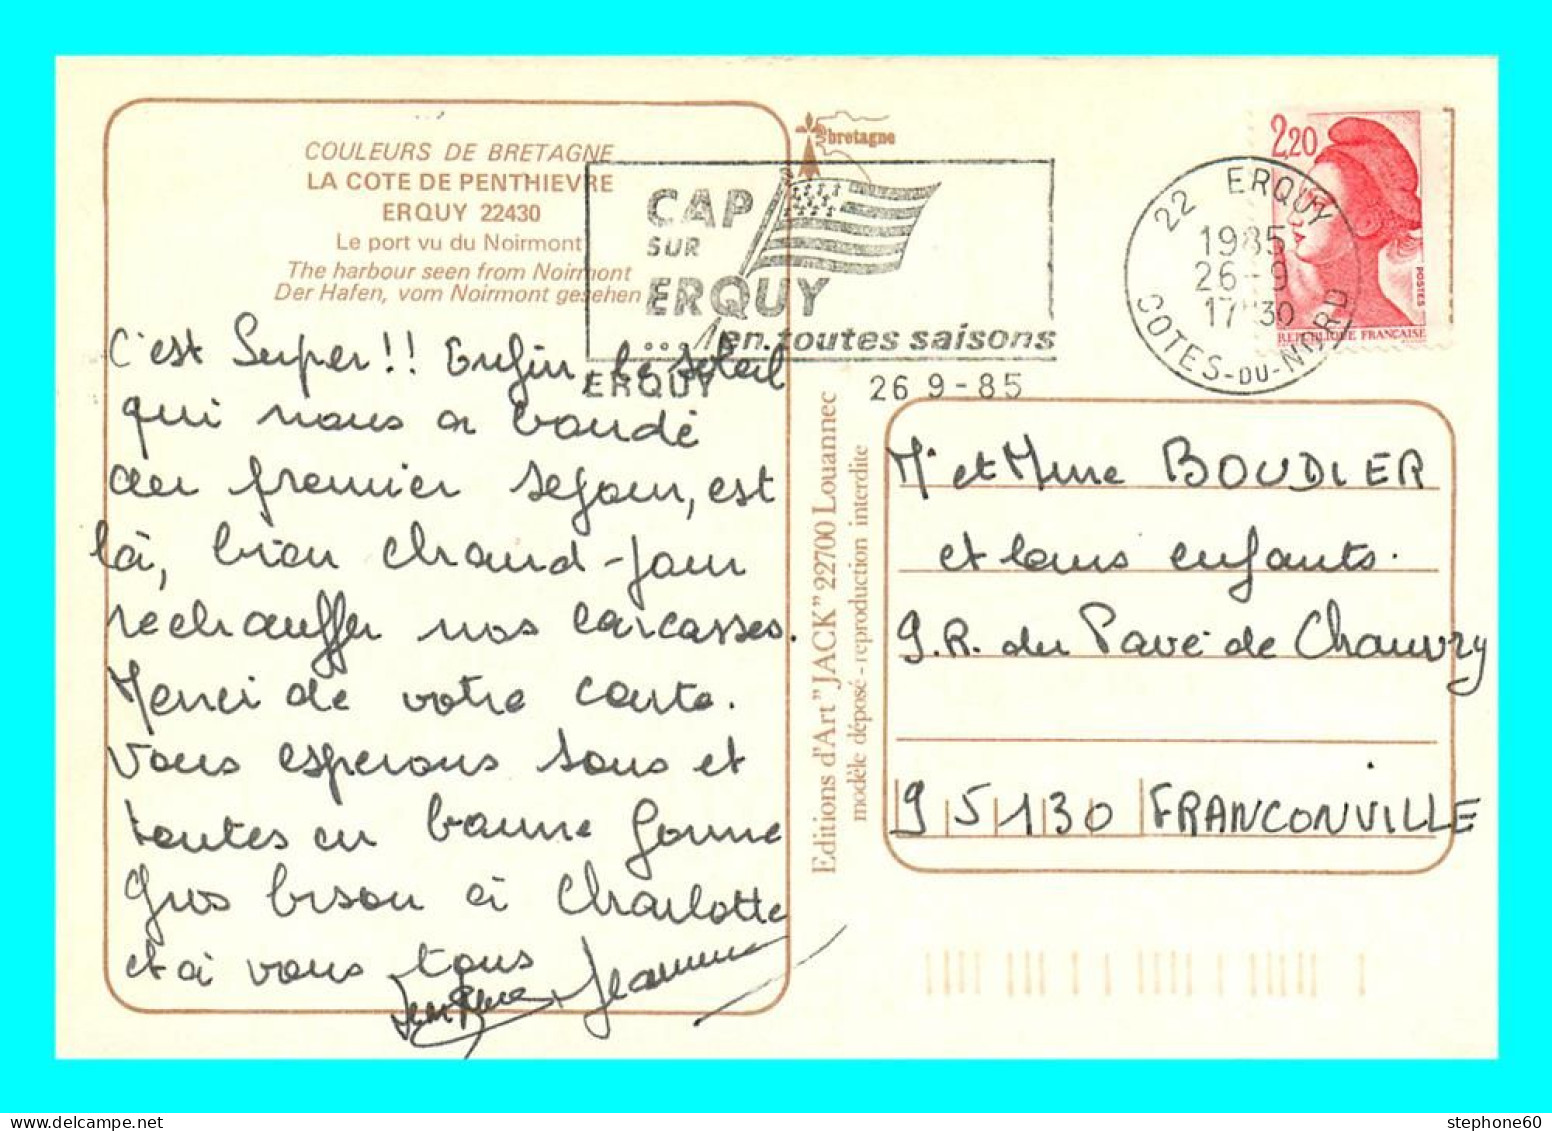 COULEURS DE BRETAGNE
LA COTE DE PENTHIEVRE
ERQUY 22430
Le port vu du Noirmont
The harbour seen from Noirmont
Der Hafen, vom Noirmont gesehen
bretagne
CAP
SUR
ERQUY
... en toutes saisons
ERQUY 26 9-85
22 ERQUY
1985
26-9
17H30
COTES-DU-NORD
2,20
POSTES
REPUBLIQUE FRANÇAISE
C'est Super!! Enfin le soleil
qui nous a boudé
au premier séjour, est
là, bien chaud pour
rechauffer nos carcasses.
Merci de votre carte.
Vous esperons tous et
toutes en bonne forme
Gros bisou à Charlotte
et à vous tous
Jeanne
Editions d'Art "JACK" 22700 Louannec
modèle déposé - reproduction interdite
Mr et Mme BOUDIER
et leurs enfants.
9. R. du Pavé de Chauvry
95130 FRANCONVILLE
stephone60